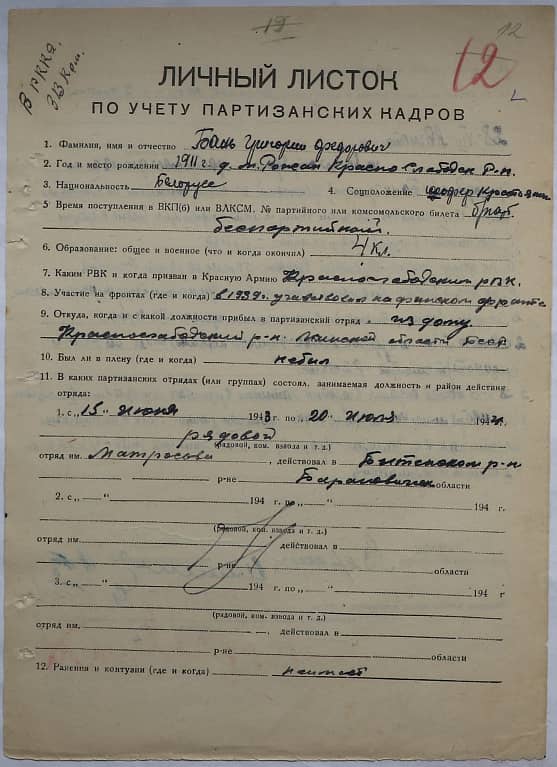 19
12
12
В РККА.
ЗВ Ком.
ЛИЧНЫЙ ЛИСТОК
ПО УЧЕТУ ПАРТИЗАНСКИХ КАДРОВ
1. Фамилия, имя и отчество Григорий Федорович
2. Год и место рождения 1911 г. д. м. Рожан Красно Слободск р-н.
3. Национальность Белорусс 4. Соцположение
5 Время поступления в ВКП(б) или ВЛКСМ, № партийного или комсомольского билета
беспартийный.
6. Образование: общее и военное (что и когда окончил) 4 кл.
7. Каким РВК и когда призван в Красную Армию Краснослабодским рвк.
8. Участие на фронтах (где и когда) в 1939 г. участвовал на финском фронте
9. Откуда, когда и с какой должности прибыл в партизанский отряд из дому.
Краснослабодский р-н. Минской области БССР
10. Был ли в плену (где и когда) небыл
11. В каких партизанских отрядах (или группах) состоял, занимаемая должность и район действия
отряда:
1. с „15" Июня 1943 г. по „20" Июля 194 г.
рядовой
(рядовой, ком. взвода и т. д.)
отряд им. Матросова, действовал в Бытенском р-н
р-не Барановичск области
2. с „ — " 194 г. по „ — " 194 г.
(рядовой, ком. взвода и т. д.)
отряд им. действовал в
р-не области
3. с „ — " 194 г. по „ — " 194 г
(рядовой, ком. взвода и т. д.)
отряд им. , действовал в
р-не области
12. Ранения и контузии (где и когда) неимеет